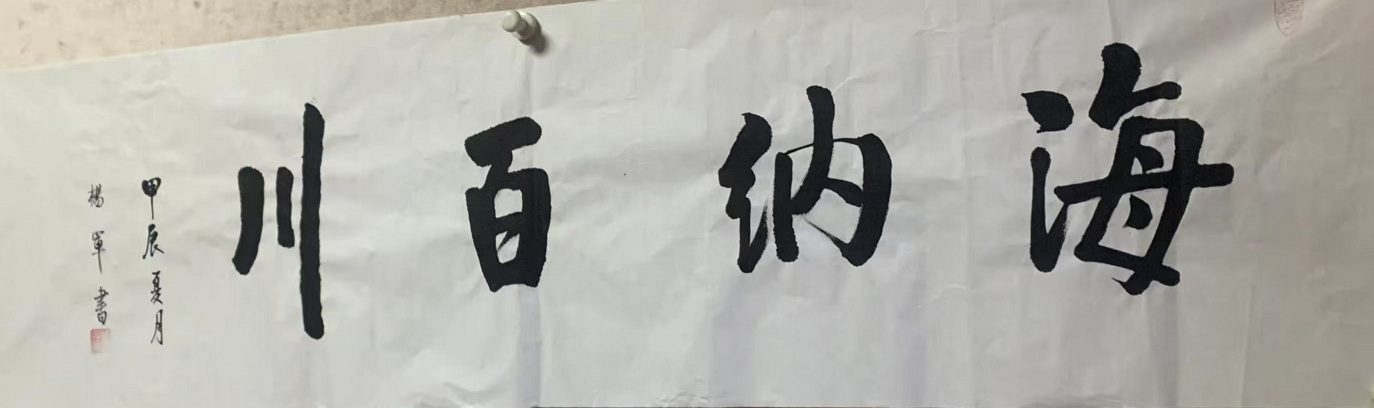 海纳百川
甲辰夏月
楊軍書